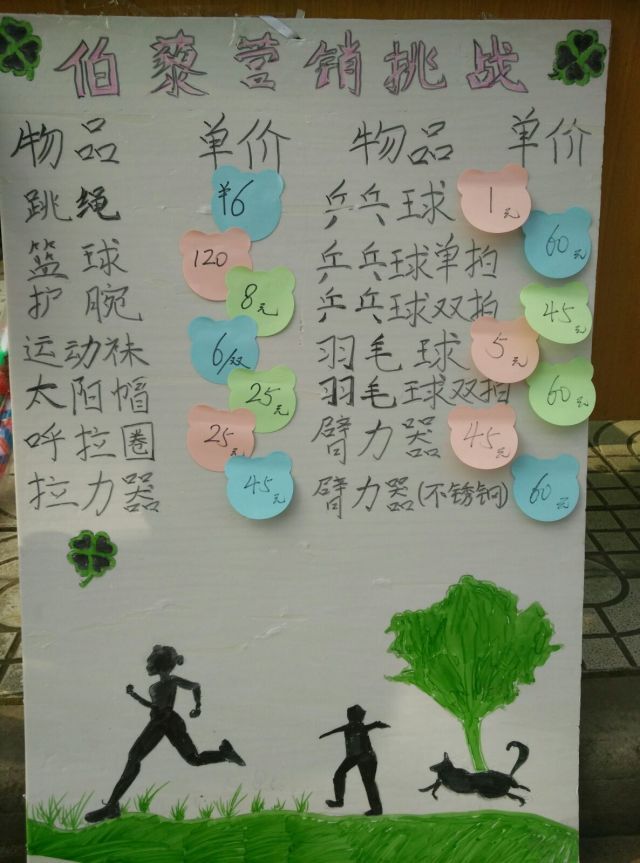 伯藜营销挑战
物品 单价 物品 单价
跳绳 ¥6 乒乓球 1元
篮球 120 乒乓球单拍 60元
护腕 8元 乒乓球双拍 45元
运动袜 6/双 羽毛球 5元
太阳帽 25元 羽毛球双拍 60元
呼拉圈 25元 臂力器 45元
拉力器 45元 臂力器(不锈钢) 60元